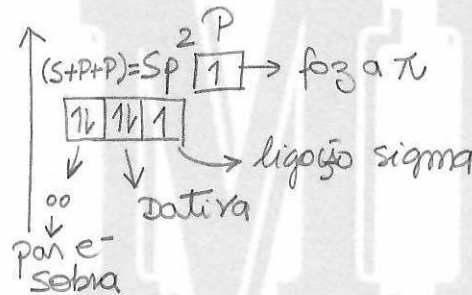 (S+P+P)=Sp² P
1 → foz a π
1⇂ 1⇂ 1
ligação sigma
Dativa
par e⁻
sobra